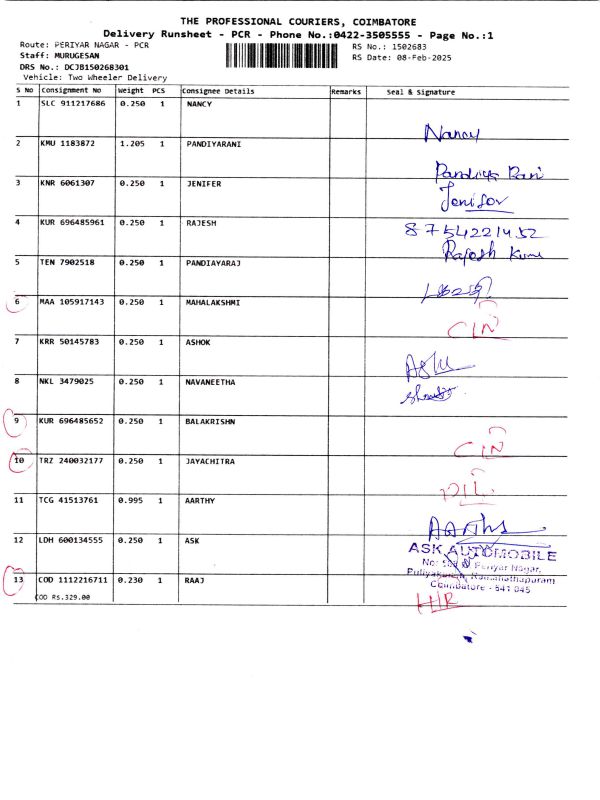 THE PROFESSIONAL COURIERS, COIMBATORE
Delivery Runsheet - PCR - Phone No.:0422-3505555 - Page No.:1
Route: PERIYAR NAGAR - PCR RS No.: 1502683
Staff: MURUGESAN RS Date: 08-Feb-2025
DRS No.: DCJB150268301
Vehicle: Two Wheeler Delivery
S No Consignment No Weight PCS Consignee Details Remarks Seal & Signature
1 SLC 911217686 0.250 1 NANCY
Nancy
2 KMU 1183872 1.205 1 PANDIYARANI
Pandiya Rani
3 KNR 6061307 0.250 1 JENIFER
Jenifer
4 KUR 696485961 0.250 1 RAJESH
8754221452
Rajesh Kumar
5 TEN 7902518 0.250 1 PANDIAYARAJ
6 MAA 105917143 0.250 1 MAHALAKSHMI
CIN
7 KRR 50145783 0.250 1 ASHOK
8 NKL 3479025 0.250 1 NAVANEETHA
9 KUR 696485652 0.250 1 BALAKRISHN
CIN
10 TRZ 240032177 0.250 1 JAYACHITRA
D/L
11 TCG 41513761 0.995 1 AARTHY
Aarthy
12 LDH 600134555 0.250 1 ASK
ASK AUTOMOBILE
Periyar Nagar,
Puliyakulam, Ramanathapuram
Coimbatore - 641 045
13 COD 1112216711 0.230 1 RAAJ
COD RS.329.00
HR